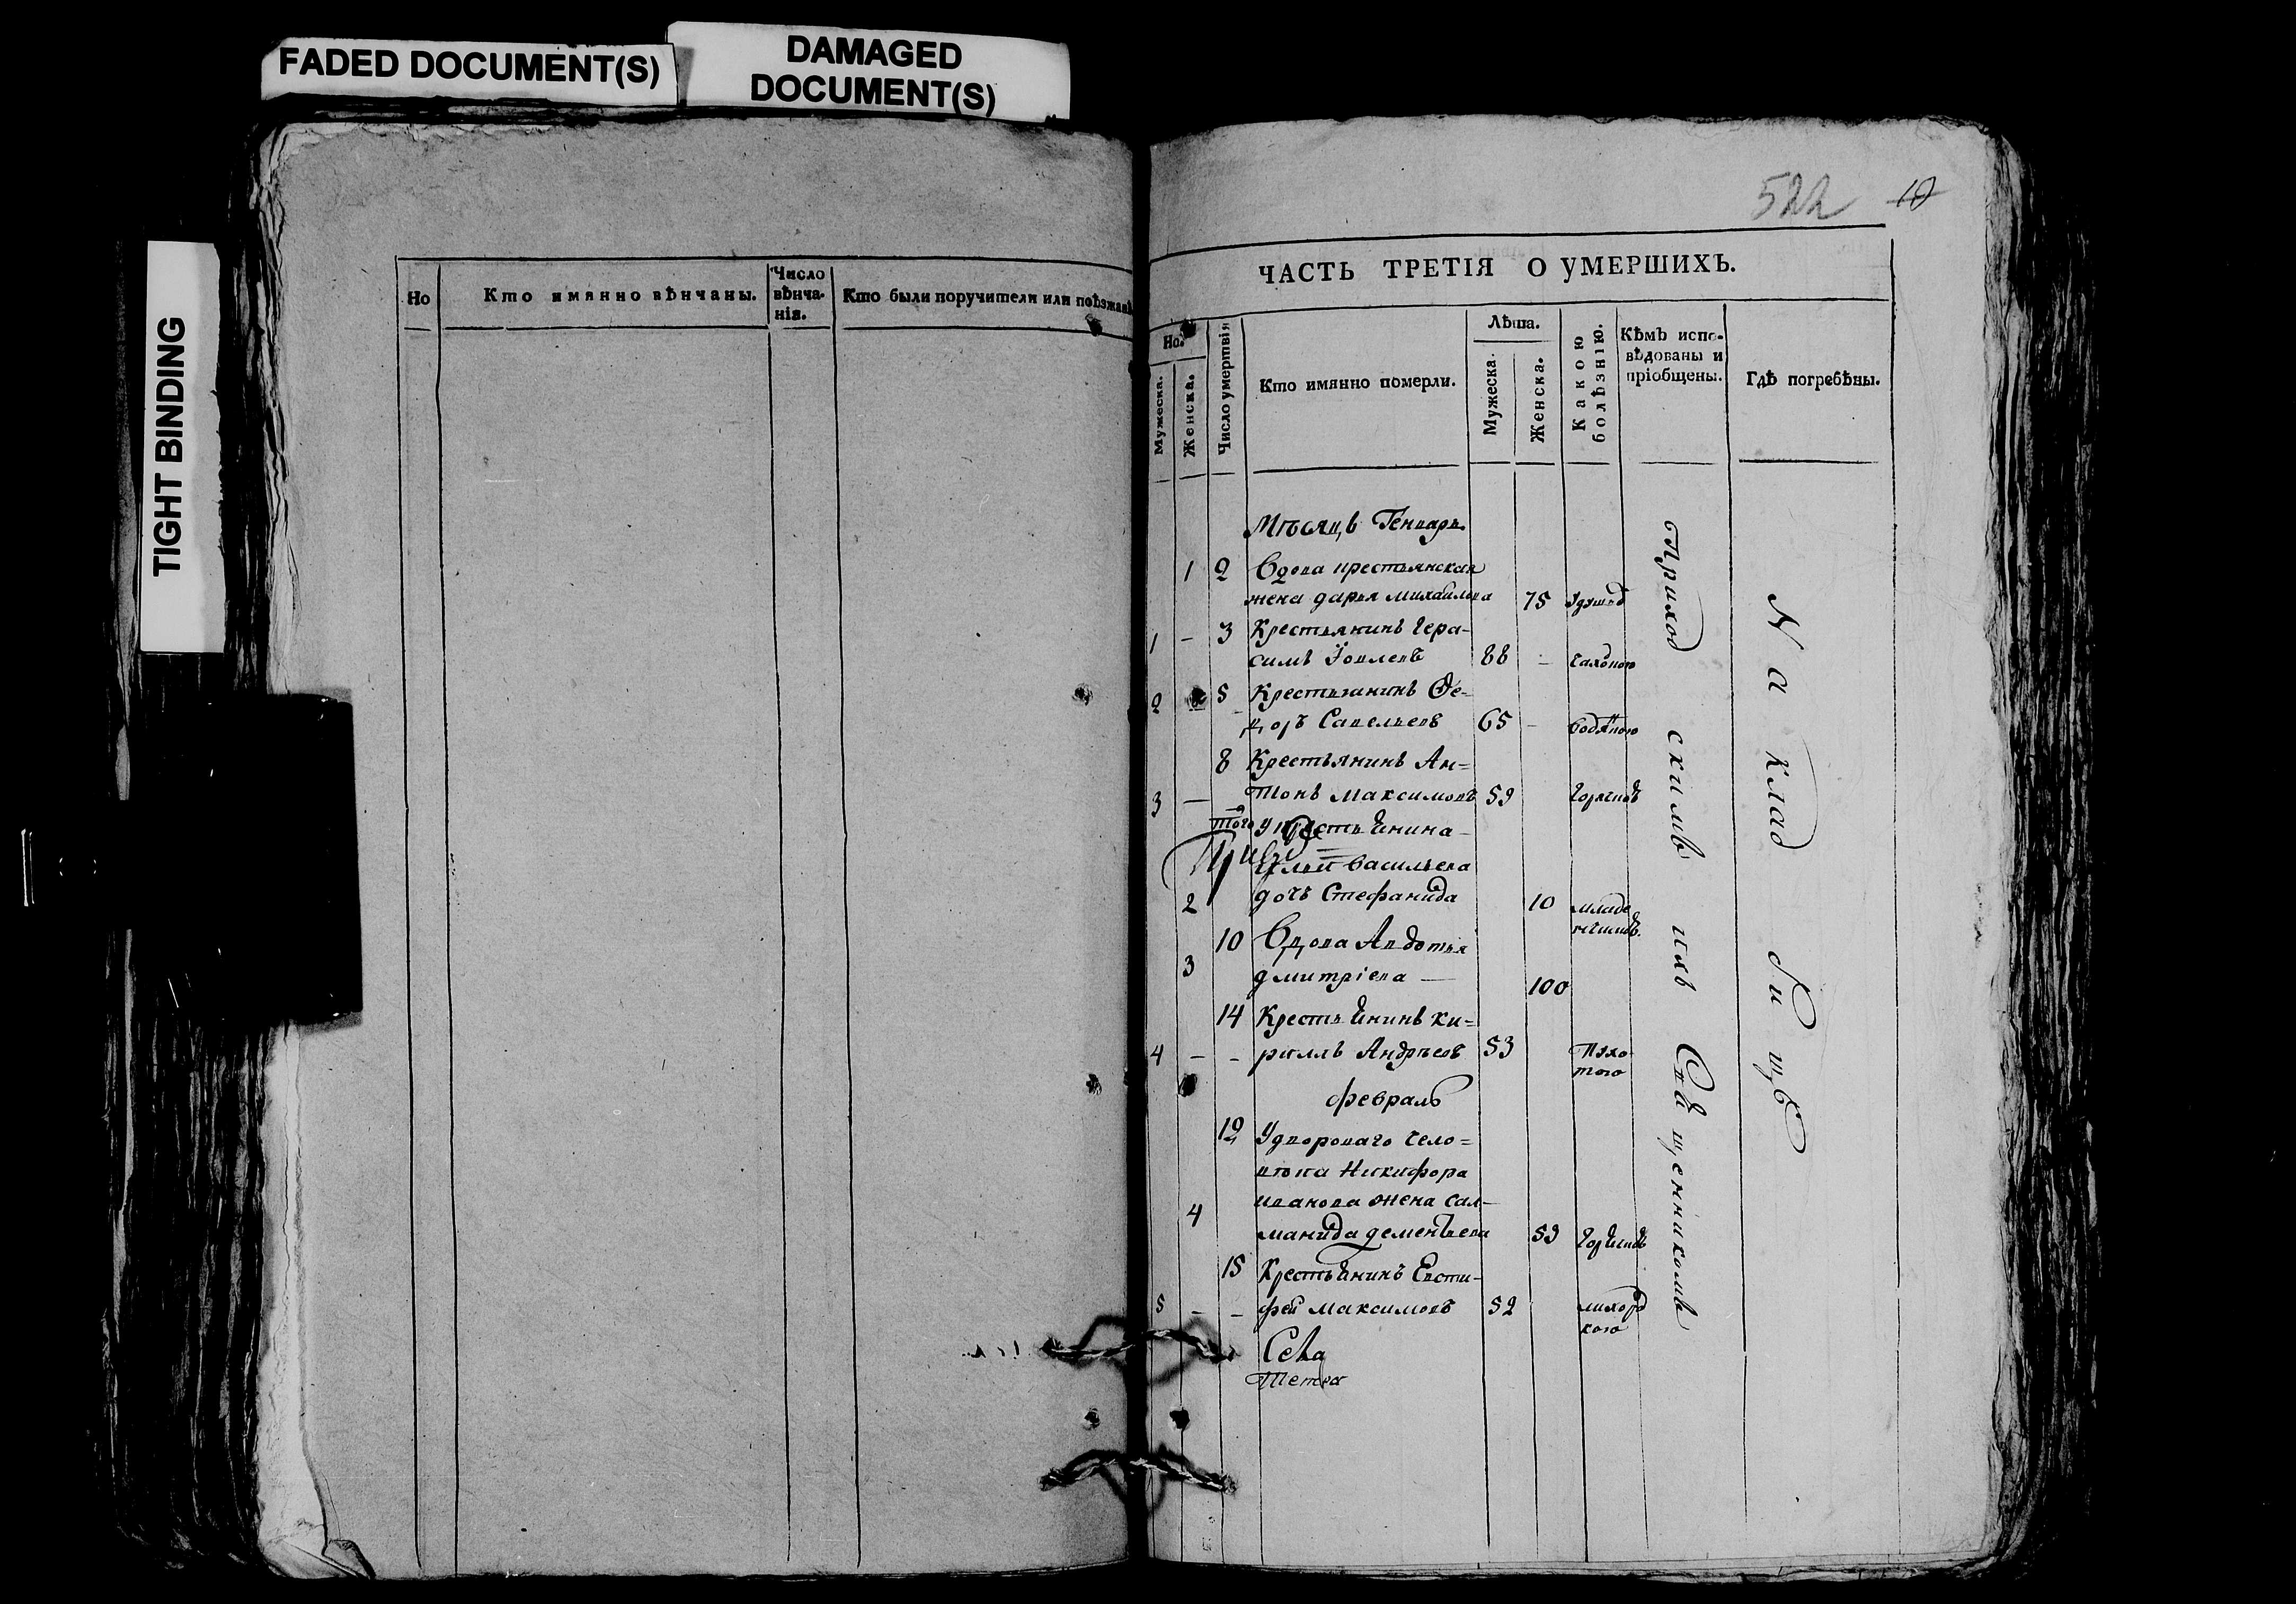 FADED DOCUMENT(S)
DAMAGED
DOCUMENT(S)
TIGHT BINDING
Но
Кто имянно вѣнчаны.
Число
вѣнча-
нія.
Кто были поручители или поѣзжанѣ
522 10
ЧАСТЬ ТРЕТІЯ О УМЕРШИХЪ.
Но.
Мужеска.
Женска.
Число умертвія
Кто имянно померли.
Лѣта.
Мужеска.
Женска.
Какою
болѣзнію.
Кѣмъ испо-
вѣдованы и
пріобщены.
Гдѣ погребѣны.
Мѣсяцъ Генварь
1 2 Вдова крестьянская
жена дарья михайлова 75 Удушьѣ
1 - 3 Крестьянинъ Гера-
симъ Іовлевъ 88 -
2 5 Крестьянинъ Ѳе-
доръ Савельевъ 65 - водяною
8 Крестьянинъ Ан-
3 — тонъ Максимовъ 59 горячкѣ
того У крестьенина
Ильи Васильева
2 дочь Стефанида 10 младе
10 Вдова Авдотья
3 дмитріева — 100
14 Крестьенинъ ки-
4 - - риллъ Андрѣевъ 53
февраль
12 У двороваго чело-
вѣка Никифора
иванова жена сал-
4 манида дементьева 59 горячкѣ
15 Крестьенинъ Евсти-
5 - - фей Максимовъ 52 лихорд
кою
Села
Приходскимъ ихъ Священникомъ
На кладбищѣ